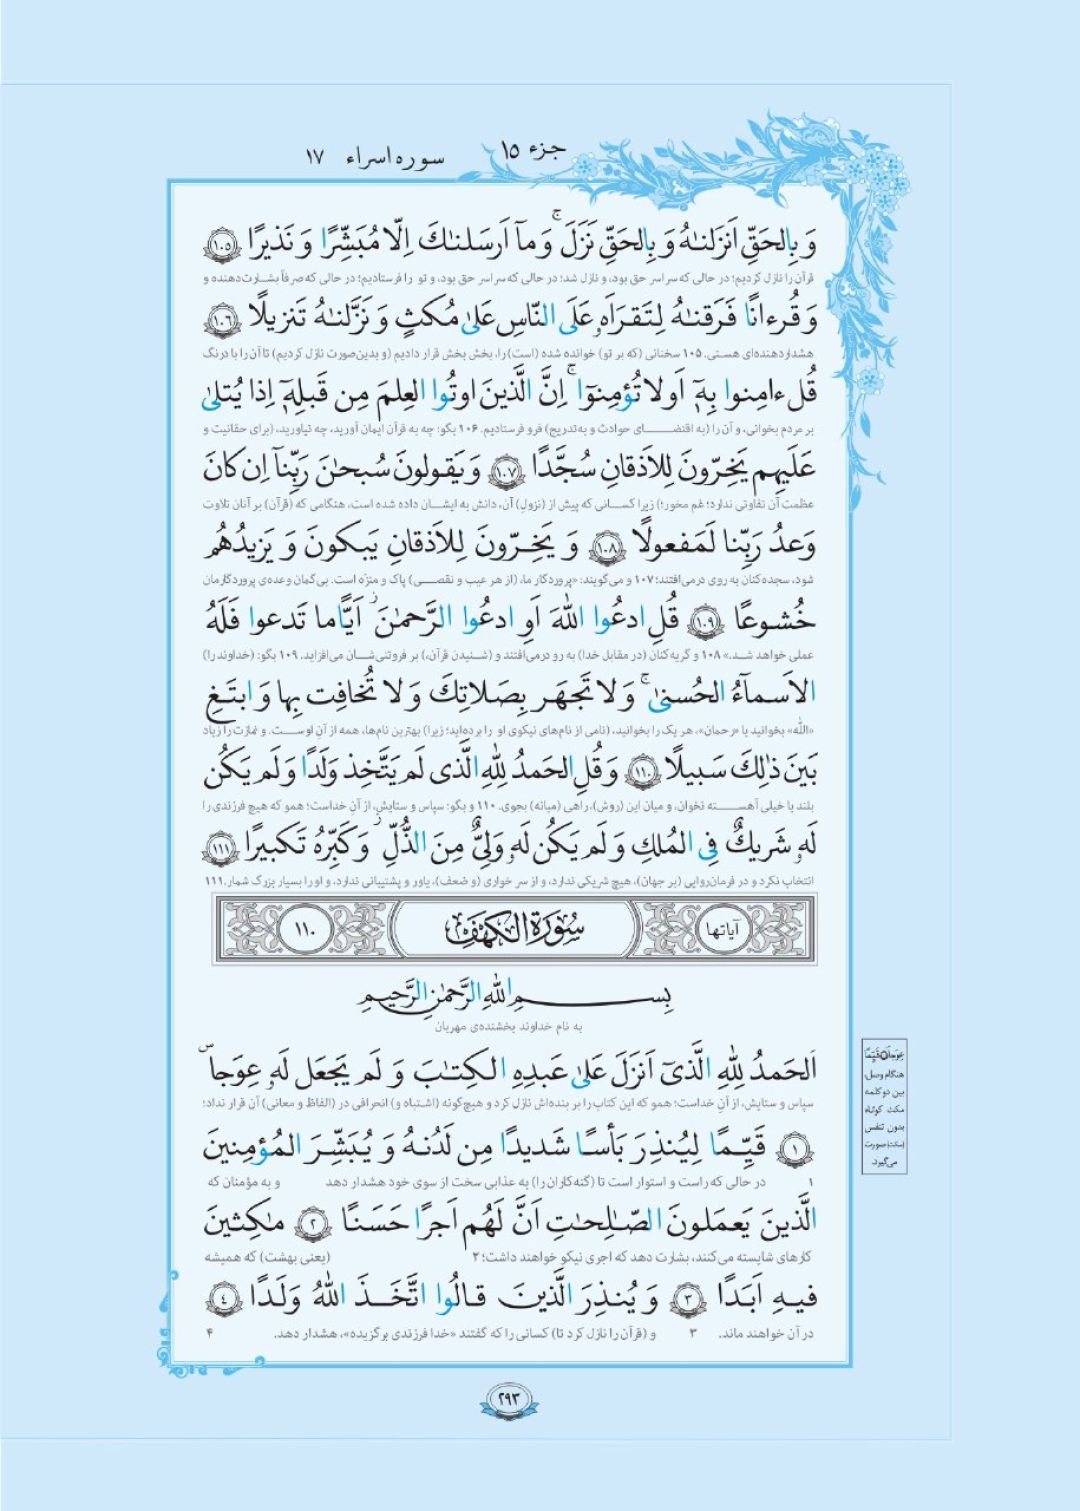 جزء ۱۵
سوره اسراء ۱۷
وَ بِالحَقِّ اَنزَلنـٰهُ وَ بِالحَقِّ نَزَلَ ۚ وَ مآ اَرسَلنـٰكَ اِلّا مُبَشِّرًا وَ نَذيرًا ﴿۱۰۵﴾
قرآن را نازل کردیم؛ در حالی که سراسر حق بود، و نازل شد؛ در حالی که سراسر حق بود، و تو را فرستادیم؛ در حالی که صرفاً بشارت‌دهنده و
وَ قُرءانًا فَرَقنـٰهُ لِتَقرَاَهُ‌و عَلَى النّاسِ عَلىٰ مُكثٍ وَ نَزَّلنـٰهُ تَنزيلًا ﴿۱۰۶﴾
هشداردهنده‌ای هستی. ۱۰۵ سخنانی (که بر تو) خوانده شده (است) را، بخش بخش قرار دادیم (و بدین‌صورت نازل کردیم) تا آن را با درنگ
قُل ءامِنوا بِهِ‌ٓ اَو لا تُؤمِنوٓا ۚ اِنَّ الَّذينَ اوتُوا العِلمَ مِن قَبلِهِ‌ٓ اِذا يُتلىٰ
بر مردم بخوانی، و آن را (به اقتضـای حوادث و به‌تدریج) فرو فرستادیم. ۱۰۶ بگو: چه به قرآن ایمان آورید، چه نیاورید، (برای حقانیت و
عَلَيهِم يَخِرّونَ لِلاَذقانِ سُجَّدًا ﴿۱۰۷﴾ وَ يَقولونَ سُبحـٰنَ رَبِّنآ اِن كانَ
عظمت آن تفاوتی ندارد؛ غم مخور؛) زیرا کسـانی که پیش از (نزول) آن، دانش به ایشـان داده شده است، هنگامی که (قرآن) بر آنان تلاوت
وَعدُ رَبِّنا لَمَفعولًا ﴿۱۰۸﴾ وَ يَخِـرّونَ لِلاَذقانِ يَبكونَ وَ يَزيدُهُم
شود، سجده‌کنان به روی درمی‌افتند؛ ۱۰۷ و می‌گویند: «پروردگار ما، (از هر عیب و نقصـی) پاک و منزّه است. بی‌گمان وعده‌ی پروردگارمان
خُشوعًا ﴿۱۰۹﴾ قُلِ ادعُوا اللهَ اَوِ ادعُوا الرَّحمـٰنَ ۖ اَيًّا ما تَدعوا فَلَهُ
عملی خواهد شـد.» ۱۰۸ و گریه‌کنان (در مقابل خدا) به رو درمی‌افتند و (شنیدن قرآن،) بر فروتنی‌شـان می‌افزاید. ۱۰۹ بگو: (خداوند را)
الاَسمآءُ الحُسنىٰ ۚ وَ لا تَجهَر بِصَلاتِكَ وَ لا تُخافِت بِها وَ ابتَغِ
«الله» بخوانید یا «رحمان»، هر یک را بخوانید، (نامی از نام‌های نیکوی او را برده‌اید؛ زیرا) بهترین نام‌ها، همه از آنِ اوسـت. و نمازت را زیاد
بَينَ ذٰلِكَ سَبيلًا ﴿۱۱۰﴾ وَ قُلِ الحَمدُ لِلّٰهِ الَّذى لَم يَتَّخِذ وَلَدًا وَ لَم يَكُن
بلند یا خیلی آهسـته نخوان، و میان این (روش)، راهی (میانه) بجوی. ۱۱۰ و بگو: سپاس و ستایش، از آنِ خداست؛ همو که هیچ فرزندی را
لَهُ‌و شَريكٌ فِى المُلكِ وَ لَم يَكُن لَهُ‌و وَلِىٌّ مِنَ الذُّلِّ ۖ وَ كَبِّرهُ تَكبيرًا ﴿۱۱۱﴾
انتخاب نکرد و در فرمان‌روایی (بر جهان)، هیچ شریکی ندارد، و از سر خواری (و ضعف)، یاور و پشتیبانی ندارد، و او را بسیار بزرگ شمار. ۱۱۱
آیاتها سُورَةُ الكَهف ۱۱۰
بِسمِ اللهِ الرَّحمـٰنِ الرَّحيمِ
به نام خداوند بخشنده‌ی مهربان
اَلحَمدُ لِلّٰهِ الَّذىٓ اَنزَلَ عَلىٰ عَبدِهِ الكِتـٰبَ وَ لَم يَجعَل لَهُ‌و عِوَجا ۜ
سپاس و ستایش، از آنِ خداست؛ همو که این کتاب را بر بنده‌اش نازل کرد و هیچ‌گونه (اشتباه و) انحرافی در (الفاظ و معانی) آن قرار نداد؛
﴿۱﴾ قَيِّمًا لِيُنذِرَ بَأسًا شَديدًا مِن لَدُنهُ وَ يُبَشِّرَ المُؤمِنينَ
۱ در حالی که راست و استوار است تا (گنه‌کاران را) به عذابی سخت از سوی خود هشدار دهد و به مؤمنان که
الَّذينَ يَعمَلونَ الصّـٰلِحـٰتِ اَنَّ لَهُم اَجرًا حَسَنًا ﴿۲﴾ مـٰكِثينَ
کارهای شایسته می‌کنند، بشارت دهد که اجری نیکو خواهند داشت؛ ۲ (یعنی بهشت) که همیشه
فيهِ اَبَدًا ﴿۳﴾ وَ يُنذِرَ الَّذينَ قالُوا اتَّخَذَ اللهُ وَلَدًا ﴿۴﴾
در آن خواهند ماند. ۳ و (قرآن را نازل کرد تا) کسانی را که گفتند «خدا فرزندی برگزیده»، هشدار دهد. ۴
عِوَجاً ۝ قَیِّمًا
هنگام وصل،
بین دو کلمه
مکث کوتاه
بدون تنفس
(سکت) صورت
می‌گیرد.
۲۹۳